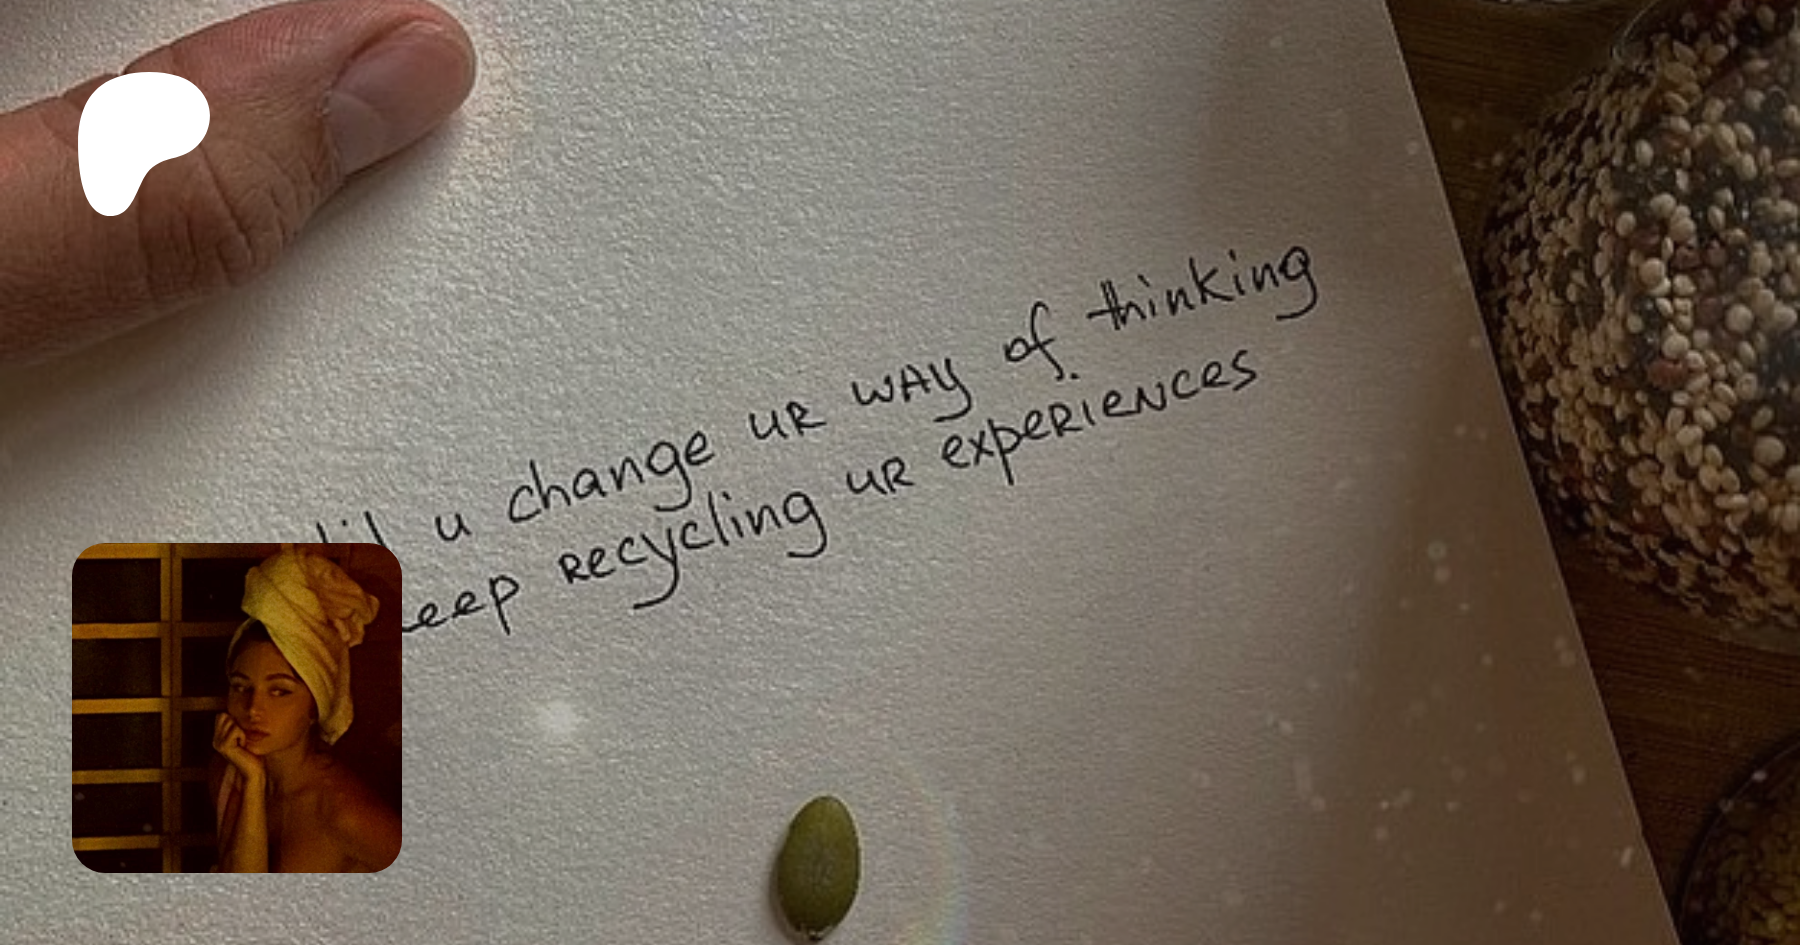 u change uR wAy of thinking
recycling uR expeRieNces